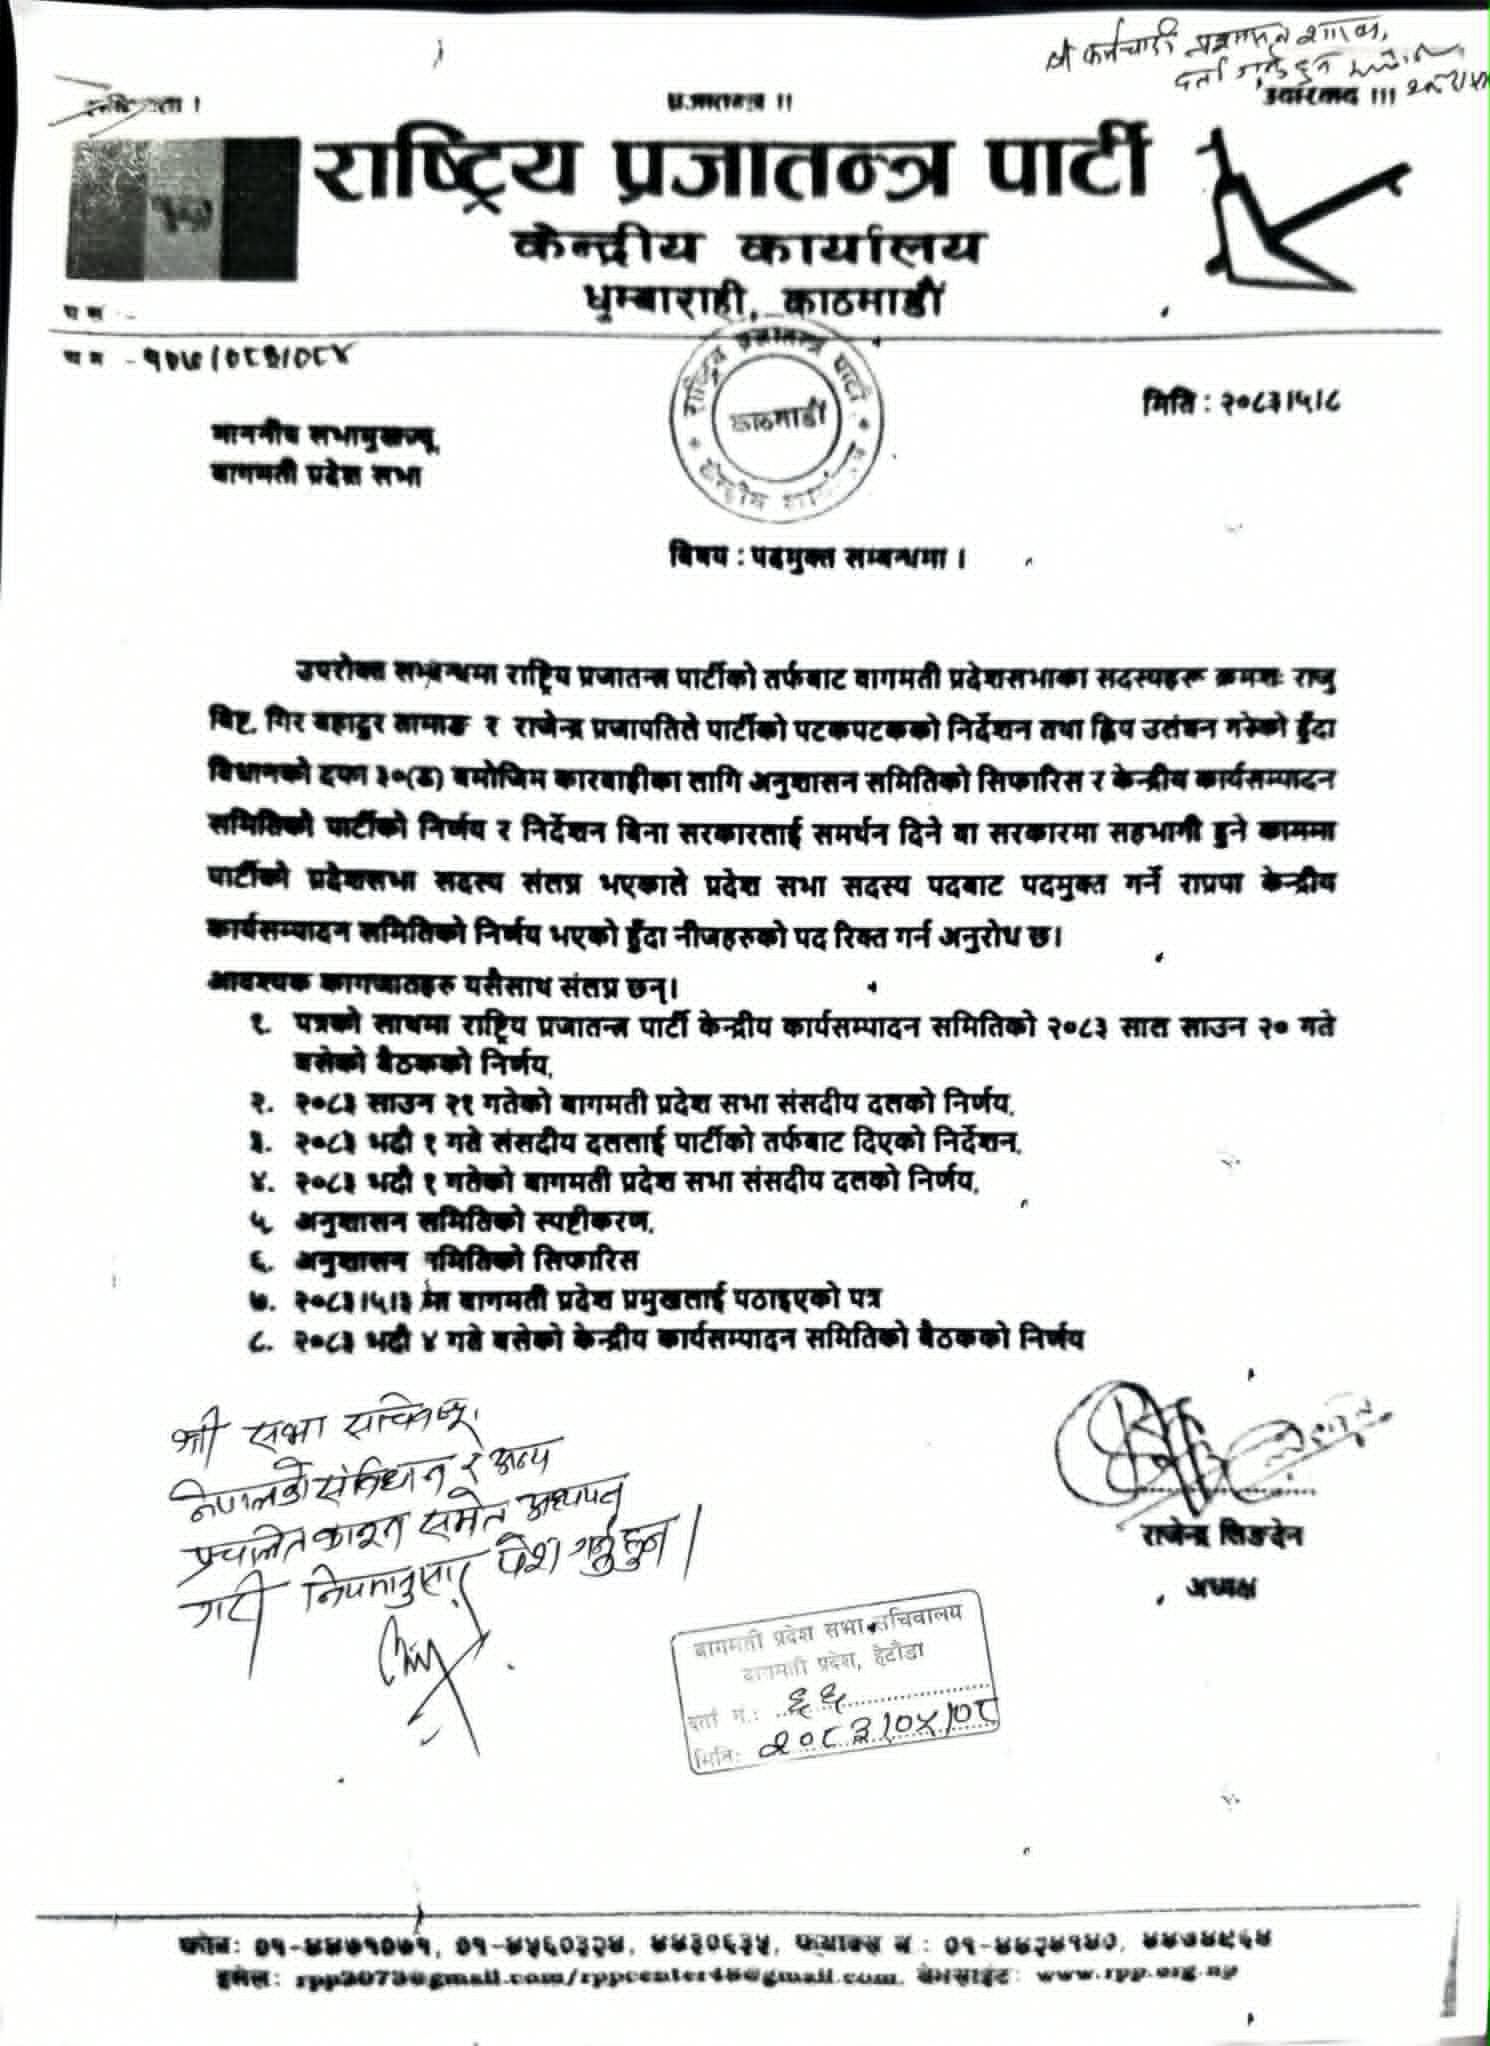 श्री कर्मचारी प्रशासन शाखा,
दर्ता गर्नु हुन
प्रजातन्त्र ।।
उदारवाद ।।।
राष्ट्रिय प्रजातन्त्र पार्टी
केन्द्रीय कार्यालय
धुम्बाराही, काठमाडौं
प स :-
च न - १०७/०८३/०८४
राष्ट्रिय प्रजातन्त्र पार्टी
काठमाडौं
केन्द्रीय
मिति : २०८३।५।८
माननीय सभामुखज्यू,
बागमती प्रदेश सभा
विषय : पदमुक्त सम्बन्धमा ।
उपरोक्त सम्बन्धमा राष्ट्रिय प्रजातन्त्र पार्टीको तर्फबाट बागमती प्रदेशसभाका सदस्यहरू क्रमशः राजु
विष्ट, गिर बहादुर तामाङ र राजेन्द्र प्रजापतिले पार्टीको पटकपटकको निर्देशन तथा ह्विप उलंघन गरेको हुँदा
विधानको दफा ३०(ड) बमोजिम कारबाहीका लागि अनुशासन समितिको सिफारिस र केन्द्रीय कार्यसम्पादन
समितिको पार्टीको निर्णय र निर्देशन बिना सरकारलाई समर्थन दिने वा सरकारमा सहभागी हुने काममा
पार्टीको प्रदेशसभा सदस्य संलग्न भएकाले प्रदेश सभा सदस्य पदबाट पदमुक्त गर्ने राप्रपा केन्द्रीय
कार्यसम्पादन समितिको निर्णय भएको हुँदा नीजहरुको पद रिक्त गर्न अनुरोध छ।
आवश्यक कागजातहरु यसैसाथ संलग्न छन्।
१. पत्रको साथमा राष्ट्रिय प्रजातन्त्र पार्टी केन्द्रीय कार्यसम्पादन समितिको २०८३ साल साउन २० गते
बसेको बैठकको निर्णय,
२. २०८३ साउन २१ गतेको बागमती प्रदेश सभा संसदीय दलको निर्णय,
३. २०८३ भदौ १ गते संसदीय दललाई पार्टीको तर्फबाट दिएको निर्देशन,
४. २०८३ भदौ १ गतेको बागमती प्रदेश सभा संसदीय दलको निर्णय,
५. अनुशासन समितिको स्पष्टीकरण,
६. अनुशासन समितिको सिफारिस
७. २०८३।५।३ मा बागमती प्रदेश प्रमुखलाई पठाइएको पत्र
८. २०८३ भदौ ४ गते बसेको केन्द्रीय कार्यसम्पादन समितिको बैठकको निर्णय
श्री सभा सचिवज्यू,
नेपालको संविधान र अन्य
प्रचलित कानून समेत अध्ययन
गरी नियमानुसार पेश गर्नुहुन ।
राजेन्द्र लिङदेन
अध्यक्ष
बागमती प्रदेश सभा सचिवालय
बागमती प्रदेश, हेटौंडा
दर्ता नं.: ६६
मिति: २०८३/०५/०८
फोन: ०१-४४७१०७१, ०१-४५६०३२४, ४४३०६३५, फ्याक्स नं : ०१-४४२४१४०, ४४७४९६४
इमेल: rpp2073@gmail.com/rppcenter48@gmail.com, वेभसाइट: www.rpp.org.np